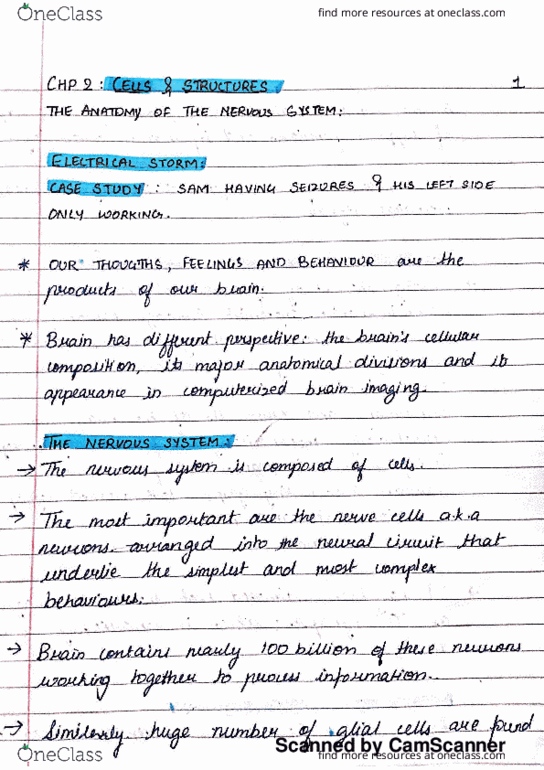 OneClass
find more resources at oneclass.com
CHP 2 : CELLS & STRUCTURES. 1
THE ANATOMY OF THE NERVOUS SYSTEM:
ELECTRICAL STORM:
CASE STUDY : SAM HAVING SEIZURES & HIS LEFT SIDE
ONLY WORKING.
* OUR THOUGTHS, FEELINGS AND BEHAVIOUR are the
products of our brain.
* Brain has different perspective: the brain's cellular
composition, its major anatomical divisions and its
appearance in computerized brain imaging.
THE NERVOUS SYSTEM:
→ The nervous system is composed of cells.
→ The most important are the nerve cells a.k.a
neurons arranged into the neural circuit that
underlie the simplest and most complex
behaviours.
→ Brain contains nearly 100 billion of these neurons
working together to process information.
→ Similarly huge number of glial cells are found
Scanned by CamScanner
OneClass
find more resources at oneclass.com